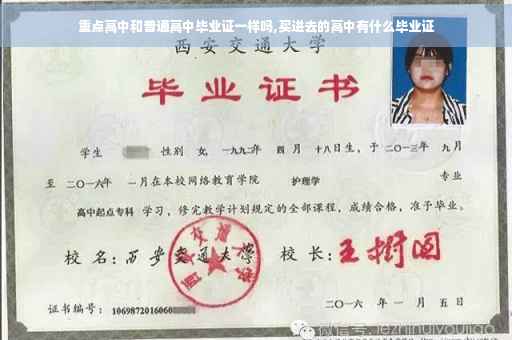 重点高中和普通高中毕业证一样吗,买进去的高中有什么毕业证
西安交通大学
毕业证书
学生 性别 女,一九九二年 四 月 十八日生,于二〇一三年 九月
至 二〇一六年 一月在本校网络教育学院 护理学 专业
高中起点专科 学习,修完教学计划规定的全部课程,成绩合格,准予毕业。
校 名:西安交通大学 校 长:王树国
西安交通大学
证书编号:1069872016060
二〇一六 年 一 月 五 日
微信号:jiezhihuiyoujiao